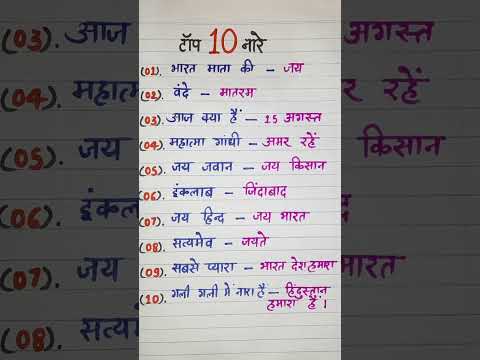 टॉप 10 नारे
(01). भारत माता की – जय
(02). वंदे – मातरम
(03). आज क्या हैं – 15 अगस्त
(04). महात्मा गांधी – अमर रहें
(05). जय जवान – जय किसान
(06). इंकलाब – जिंदाबाद
(07). जय हिन्द – जय भारत
(08). सत्यमेव – जयते
(09). सबसे प्यारा – भारत देश हमारा
(10). गली गली में नारा है – हिंदुस्तान
हमारा हैं।
(03). आज
(04). महात्म
(05). जय
(06). इंक
(07). जय
(08). सत्य
गस्त
र रहें
किसान
भारत